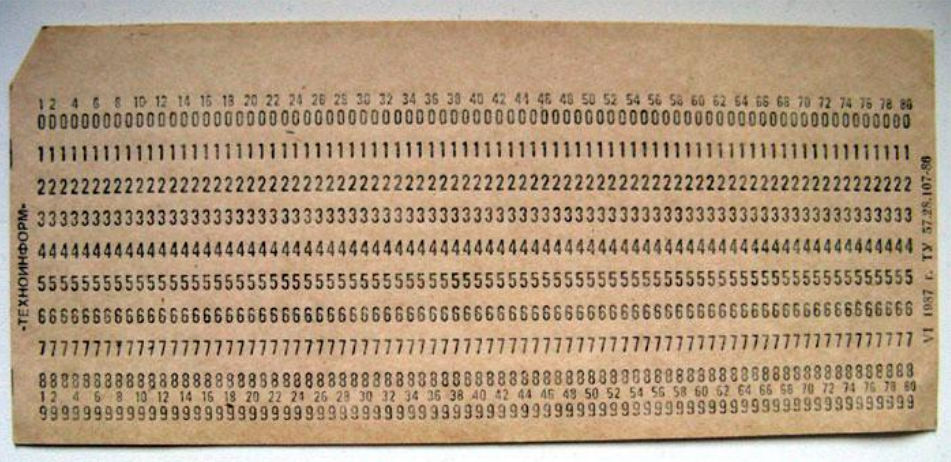 1 2 4 6 8 10 12 14 16 18 20 22 24 26 28 30 32 34 36 38 40 42 44 46 48 50 52 54 56 58 60 62 64 66 68 70 72 74 76 78 80
00000000000000000000000000000000000000000000000000000000000000000000000000000000
11111111111111111111111111111111111111111111111111111111111111111111111111111111
22222222222222222222222222222222222222222222222222222222222222222222222222222222
33333333333333333333333333333333333333333333333333333333333333333333333333333333
44444444444444444444444444444444444444444444444444444444444444444444444444444444
55555555555555555555555555555555555555555555555555555555555555555555555555555555
66666666666666666666666666666666666666666666666666666666666666666666666666666666
77777777777777777777777777777777777777777777777777777777777777777777777777777777
88888888888888888888888888888888888888888888888888888888888888888888888888888888
1 2 4 6 8 10 12 14 16 18 20 22 24 26 28 30 32 34 36 38 40 42 44 46 48 50 52 54 56 58 60 62 64 66 68 70 72 74 76 78 80
99999999999999999999999999999999999999999999999999999999999999999999999999999999
«ТЕХНОИНФОРМ»
VI 1987 г. ТУ 57.28.107-86